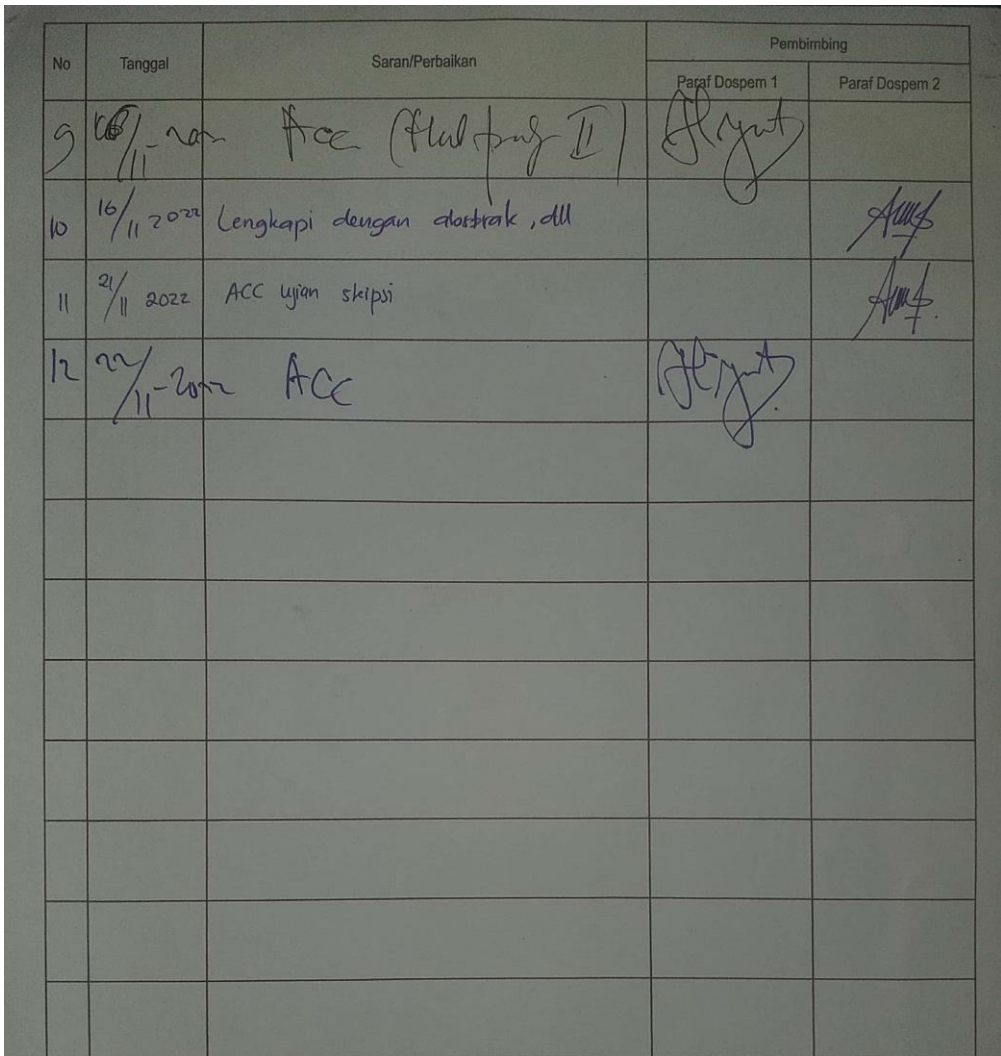 No Tanggal Saran/Perbaikan Pembimbing
Paraf Dospem 1 Paraf Dospem 2
9 Acc II
10 16/11 2022 Lengkapi dengan abstrak, dll
11 21/11 2022 ACC ujian skipsi
12 22/11-2022 ACC